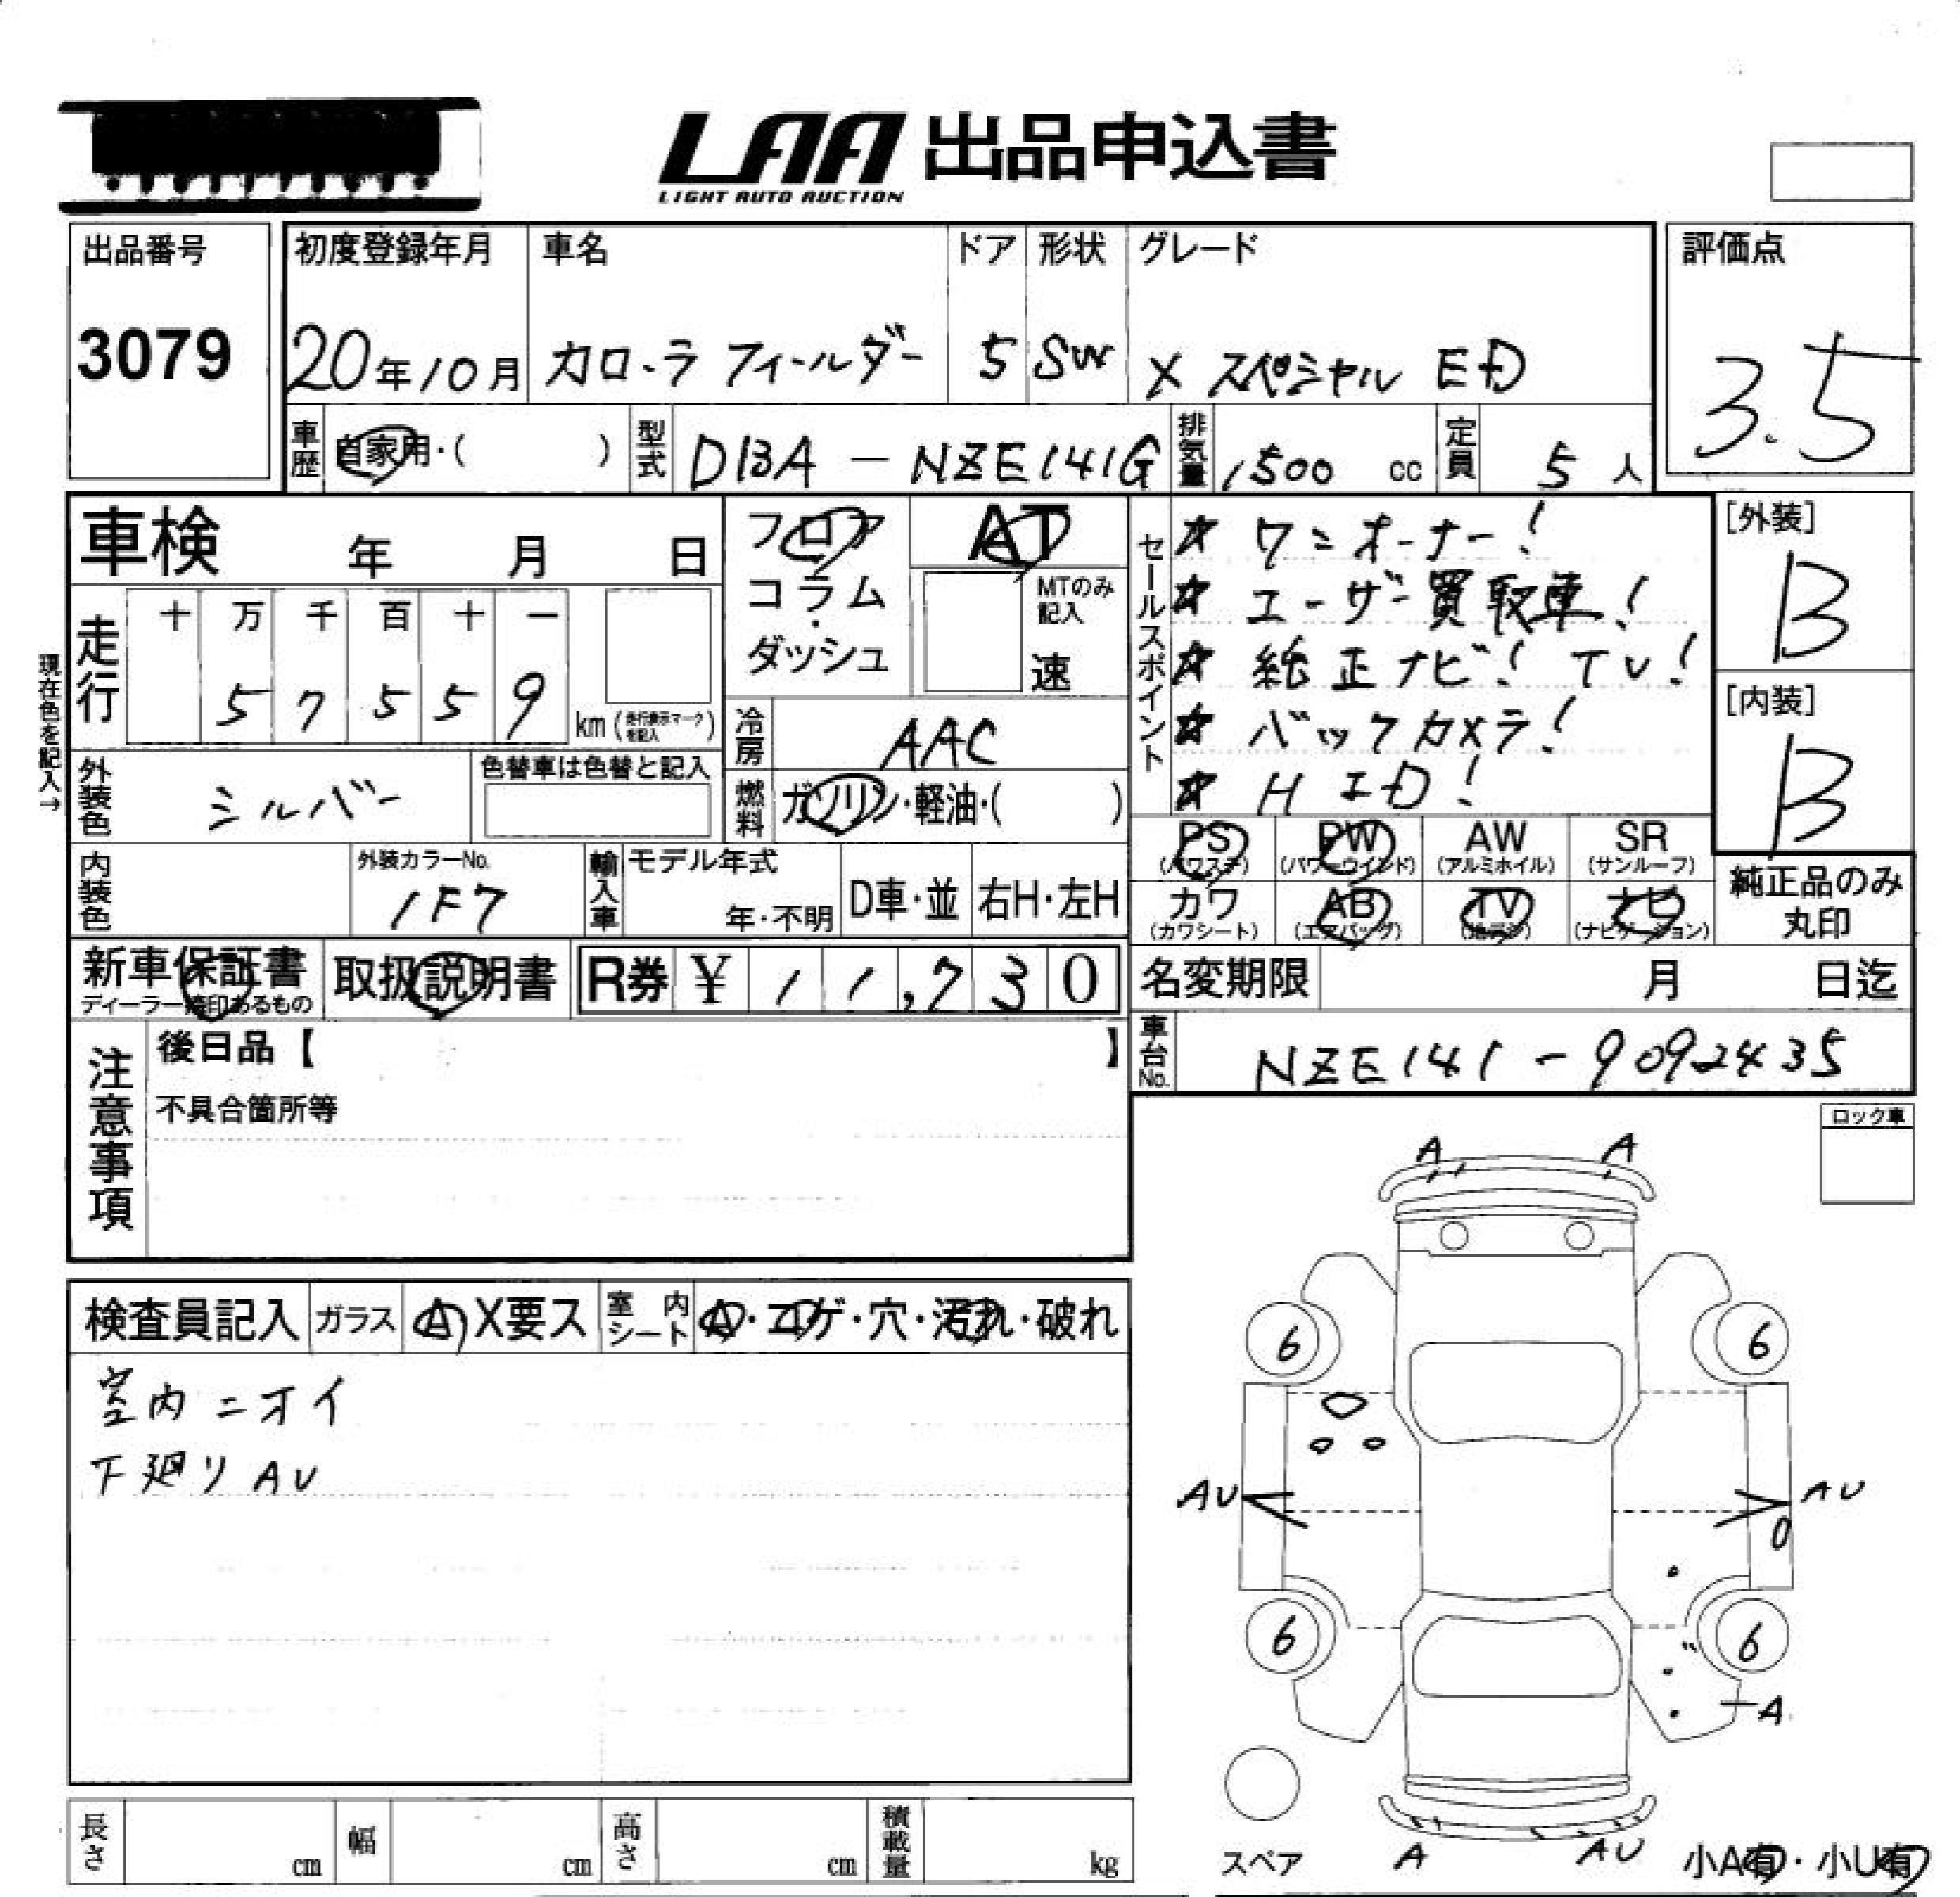 LAA 出品申込書
LIGHT AUTO AUCTION
出品番号
3079
初度登録年月
20年10月
車名
カローラ フィールダー
ドア
5
形状
SW
グレード
X スペシャル ED
評価点
3.5
車歴
自家用・( )
型式
DBA - NZE141G
排気量
1500 cc
定員
5 人
車検 年 月 日
走行
十 万 千 百 十 一
5 7 5 5 9
km (走行表示マークを記入)
現在色を記入→
外装色
シルバー
色替車は色替と記入
内装色
外装カラーNo.
1F7
輸入車
モデル年式
年・不明
D車・並
右H・左H
フロア
コラム
・
ダッシュ
AT
MTのみ
記入
速
冷房
AAC
燃料
ガソリン・軽油・( )
セールスポイント
★ ワンオーナー!
★ ユーザー買取車!
★ 純正ナビ! TV!
★ バックカメラ!
★ HID!
[外装]
B
[内装]
B
PS
(パワステ)
PW
(パワーウインド)
AW
(アルミホイル)
SR
(サンルーフ)
カワ
(カワシート)
AB
(エアバッグ)
TV
(地デジ)
ナビ
(ナビゲーション)
純正品のみ
丸印
新車保証書
ディーラー捺印あるもの
取扱説明書
R券 ¥ 11,730
名変期限 月 日迄
車台No.
NZE141-9092435
注意事項
後日品【 】
不具合箇所等
ロック車
検査員記入
ガラス
A X要ス
室内
シート
A・コゲ・穴・汚れ・破れ
室内ニオイ
下廻りAU
A A
6 6
AU AU
6 6
A
A AU
スペア
小A有・小U有
長さ cm
幅 cm
高さ cm
積載量 kg